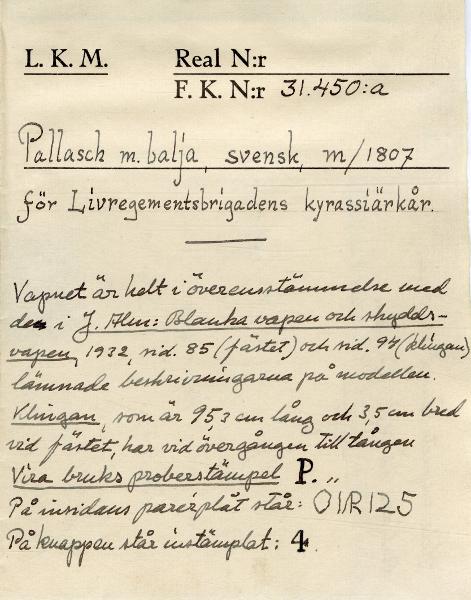 L. K. M. Real N:r
F. K. N:r 31.450:a
Pallasch m. balja, svensk, m/1807
för Livregementsbrigadens kyrassiärkår.
Vapnet är helt i överensstämmelse med
den i J. Alm: Blanka vapen och skydds-
vapen, 1932, sid. 85 (fästet) och sid. 94 (klingan)
lämnade beskrivningarna på modellen.
Klingan, som är 95,3 cm lång och 3,5 cm bred
vid fästet, har vid övergången till tången
Vira bruks proberstämpel P.,,
På insidans parérplåt står: OIIR125
På knappen står instämplat: 4.